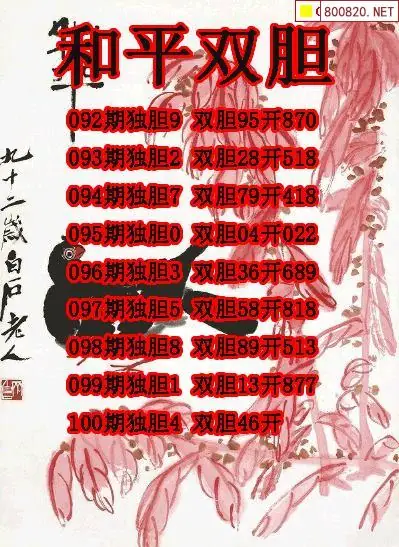 C800820.NET
和平双胆
092期独胆9 双胆95开870
093期独胆2 双胆28开518
094期独胆7 双胆79开418
095期独胆0 双胆04开022
096期独胆3 双胆36开689
097期独胆5 双胆58开818
098期独胆8 双胆89开513
099期独胆1 双胆13开877
100期独胆4 双胆46开
九十二岁白石老人